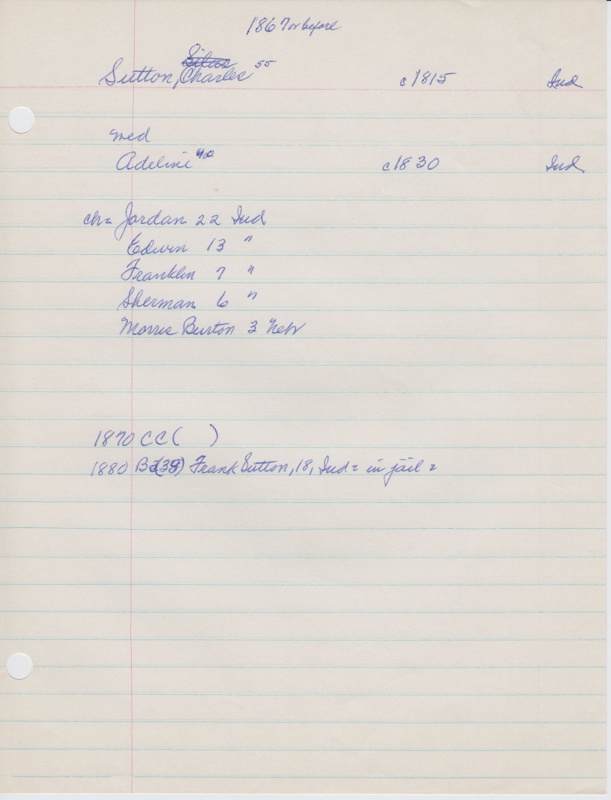 1867 or before
Silas 55
Sutton, Charles c1815 Ind
med
Adeline 40 c1830 Ind
ch= Jordan 22 Ind
Edwin 13 "
Franklin 7 "
Sherman 6 "
Morris Burton 3 Nebr
1870 CC ( )
1880 Frank Sutton, 18, Ind = in jail =